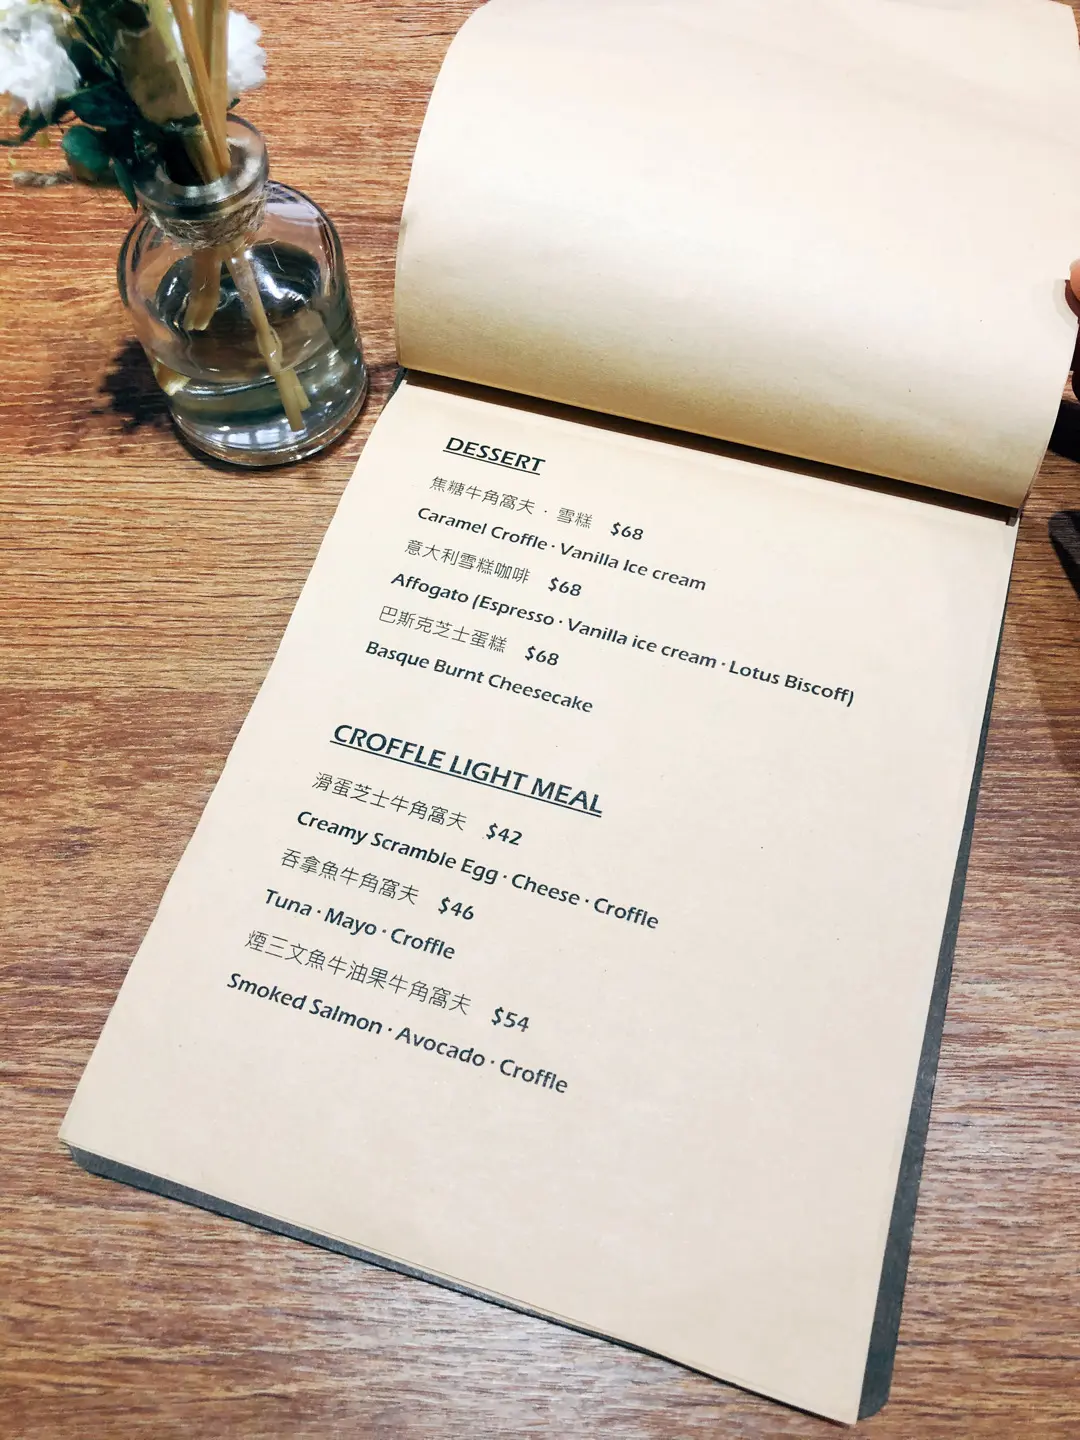 DESSERT
焦糖牛角窩夫 · 雪糕 $68
Caramel Croffle · Vanilla Ice cream
意大利雪糕咖啡 $68
Affogato (Espresso · Vanilla ice cream · Lotus Biscoff)
巴斯克芝士蛋糕 $68
Basque Burnt Cheesecake
CROFFLE LIGHT MEAL
滑蛋芝士牛角窩夫 $42
Creamy Scramble Egg · Cheese · Croffle
吞拿魚牛角窩夫 $46
Tuna · Mayo · Croffle
煙三文魚牛油果牛角窩夫 $54
Smoked Salmon · Avocado · Croffle